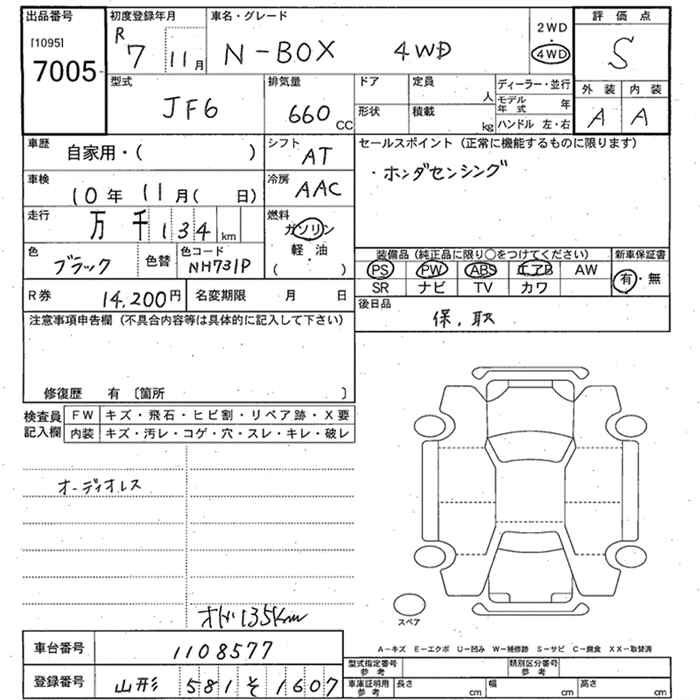 出品番号 初度登録年月 車名・グレード 評価点
[1095] 7005 R7 11月 N-BOX 4WD 2WD 4WD S
型式 JF6 排気量 660CC ドア 定員 人 ディーラー・並行
形状 積載 kg モデル年式 年 ハンドル 左・右
外装 内装
A A
車歴 自家用・( ) シフト AT
車検 10年11月( 日) 冷房 AAC
走行 万千134km 燃料 ガソリン 軽・油 ( )
色 ブラック 色替 色コード NH731P
R券 14,200円 名変期限 月 日
セールスポイント(正常に機能するものに限ります)
・ホンダセンシング
装備品(純正品に限り○をつけてください) 新車保証書
PS PW ABS エアB AW 有・無
SR ナビ TV カワ
後日品
保、取
注意事項申告欄(不具合内容等は具体的に記入して下さい)
修復歴 有 〔箇所 〕
検査員記入欄
FW キズ・飛石・ヒビ割・リペア跡・X要
内装 キズ・汚レ・コゲ・穴・スレ・キレ・破レ
オーディオレス
オド135km
スペア
A-キズ E-エクボ U-凹み W-補修跡 S-サビ C-腐食 XX-取替済
車台番号 1108577
登録番号 山形 581 そ 1607
型式指定番号 参考 類別区分番号 参考
車庫証明用 参考 長さ cm 幅 cm 高さ cm